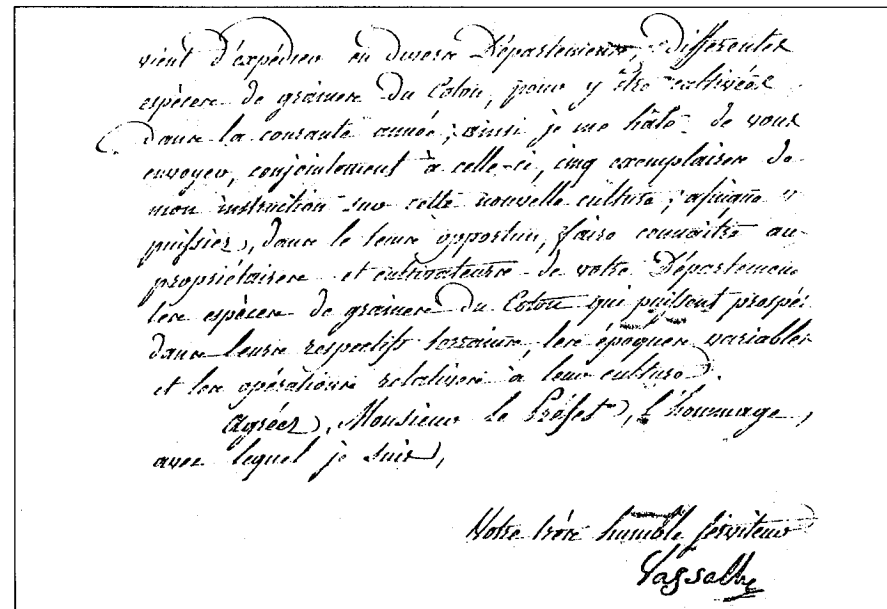 vient d'expédier en divers Départemens, différentes
espèces de graines du Coton, pour y être cultivées
dans la courante année; ainsi je me hâte de vous
envoyer, conjointement à celle-ci, cinq exemplaires de
mon instruction sur cette nouvelle culture; afinque v
puissiez, dans le tems opportun, faire connaitre au
propriétaires et cultivateurs de votre Départemen
les espèces de graines du Coton qui puissent prospé
dans leurs respectifs terrains, les époques variables
et les opérations relatives à leur culture.
Agréez, Monsieur le Préfet, l'hommage,
avec lequel je suis,
Votre très humble serviteur